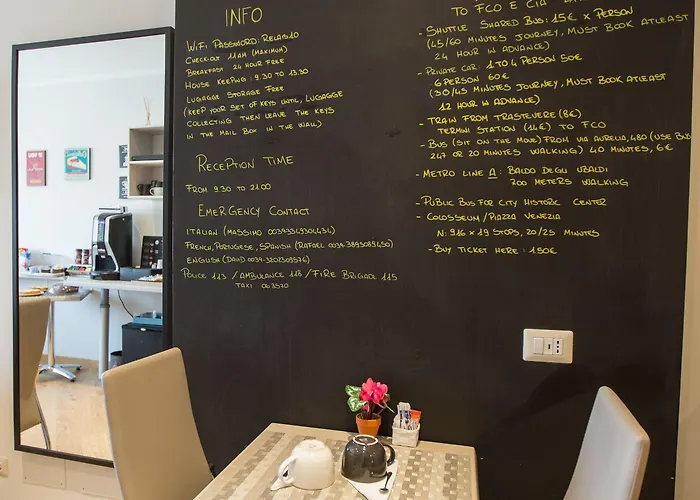 INFO
WIFI PASSWORD: RELAIS10
CHECK-OUT 11AM (MAXIMUM)
BREAKFAST 24 HOUR FREE
HOUSE KEEPING: 9.30 TO 13.30
LUGGAGE STORAGE FREE
(KEEP YOUR SET OF KEYS UNTIL LUGGAGE
COLLECTING THEN LEAVE THE KEYS
IN THE MAIL BOX IN THE WALL)
RECEPTION TIME
FROM 9.30 TO 21.00
EMERGENCY CONTACT
ITALIAN (MASSIMO 00393493304434)
FRENCH, PORTUGESE, SPANISH (RAFAEL 0039-3895089450)
ENGLISH (DAVID 0039-3202309576)
POLICE 113 / AMBULANCE 118 / FIRE BRIGADE 115
TAXI 063570
TO FCO E CIA
- SHUTTLE SHARED BUS: 15€ x PERSON
(45/60 MINUTES JOURNEY, MUST BOOK ATLEAST
24 HOUR IN ADVANCE)
- PRIVATE CAR: 1 TO 4 PERSON 50€
6 PERSON 60€
(30/45 MINUTES JOURNEY, MUST BOOK ATLEAST
12 HOUR IN ADVANCE)
- TRAIN FROM TRASTEVERE (8€)
TERMINI STATION (14€) TO FCO
- BUS (SIT ON THE MOVE) FROM VIA AURELIA, 480 (USE BUS
247 OR 20 MINUTES WALKING) 40 MINUTES, 6€
- METRO LINE A: BALDO DEGLI UBALDI
700 METERS WALKING
- PUBLIC BUS FOR CITY HISTORIC CENTER
- COLOSSEUM / PIAZZA VENEZIA
N: 916 x 19 STOPS, 20/25 MINUTES
- BUY TICKET HERE: 1.50€